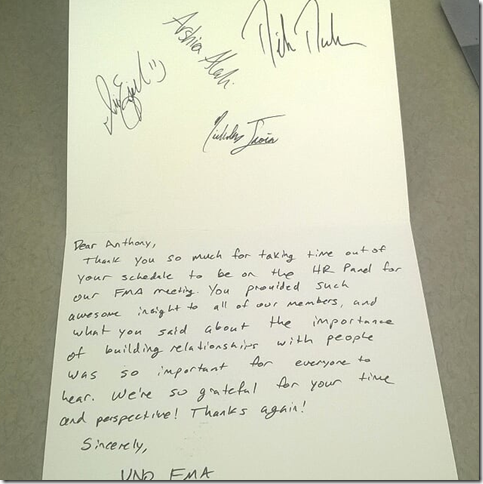 Arshia
Dear Anthony,
Thank you so much for taking time out of
your schedule to be on the HR Panel for
our FMA meeting. You provided such
awesome insight to all of our members, and
what you said about the importance
of building relationships with people
was so important for everyone to
hear. We're so grateful for your time
and perspective! Thanks again!
Sincerely,
UNO FMA